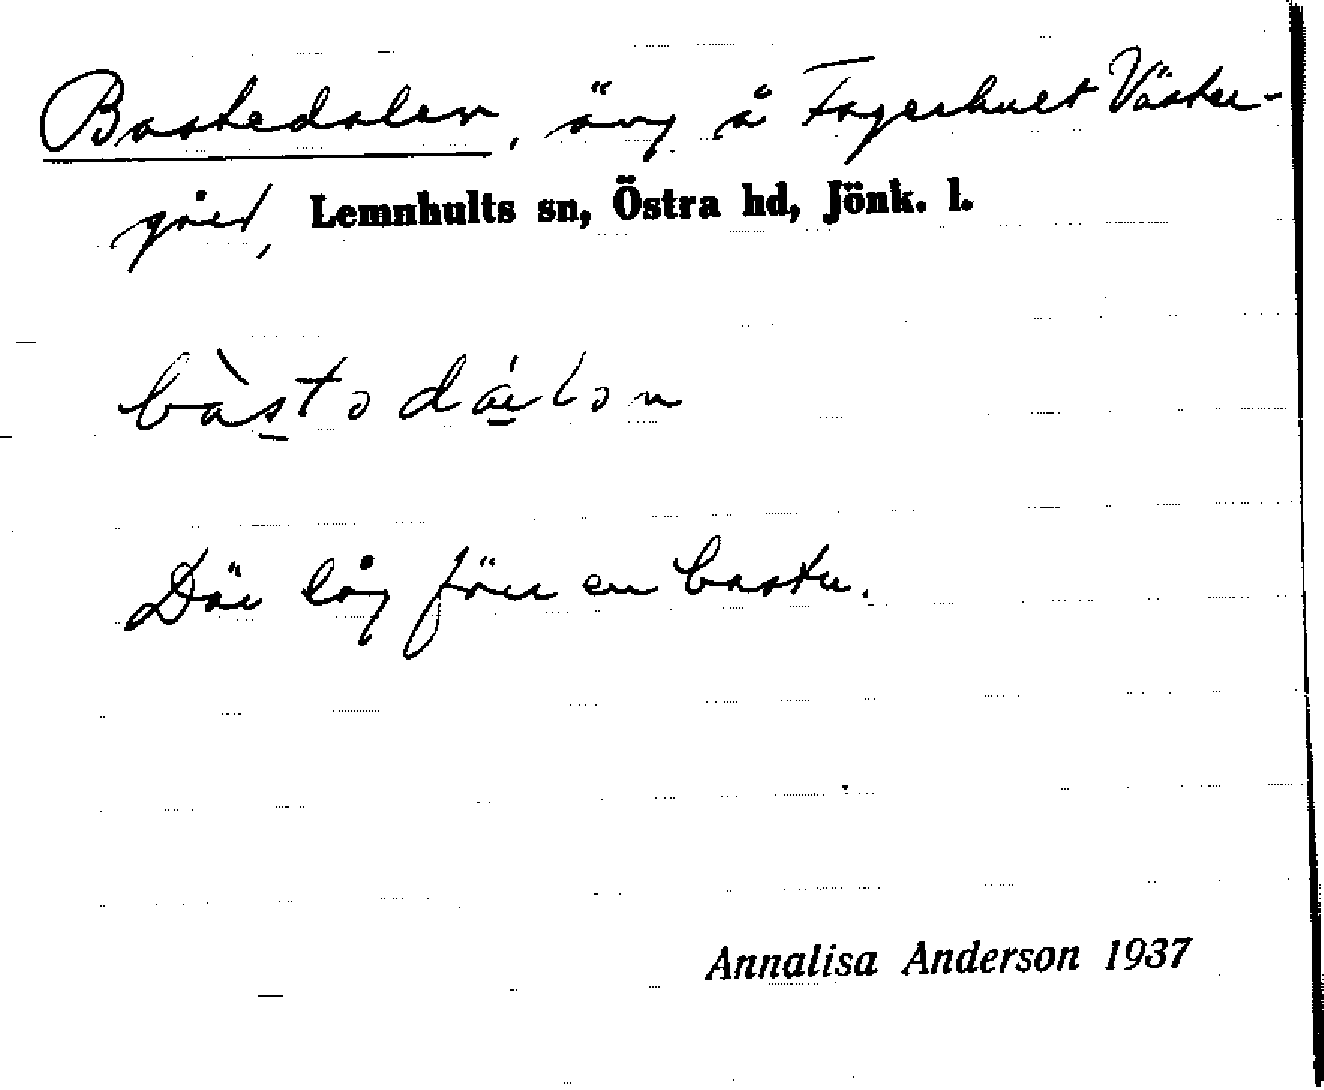 Bastedalen, äng å Fagerhult Väster-
gård, Lemnhults sn, Östra hd, Jönk. l.
Där låg förr en bastu.
Annalisa Anderson 1937